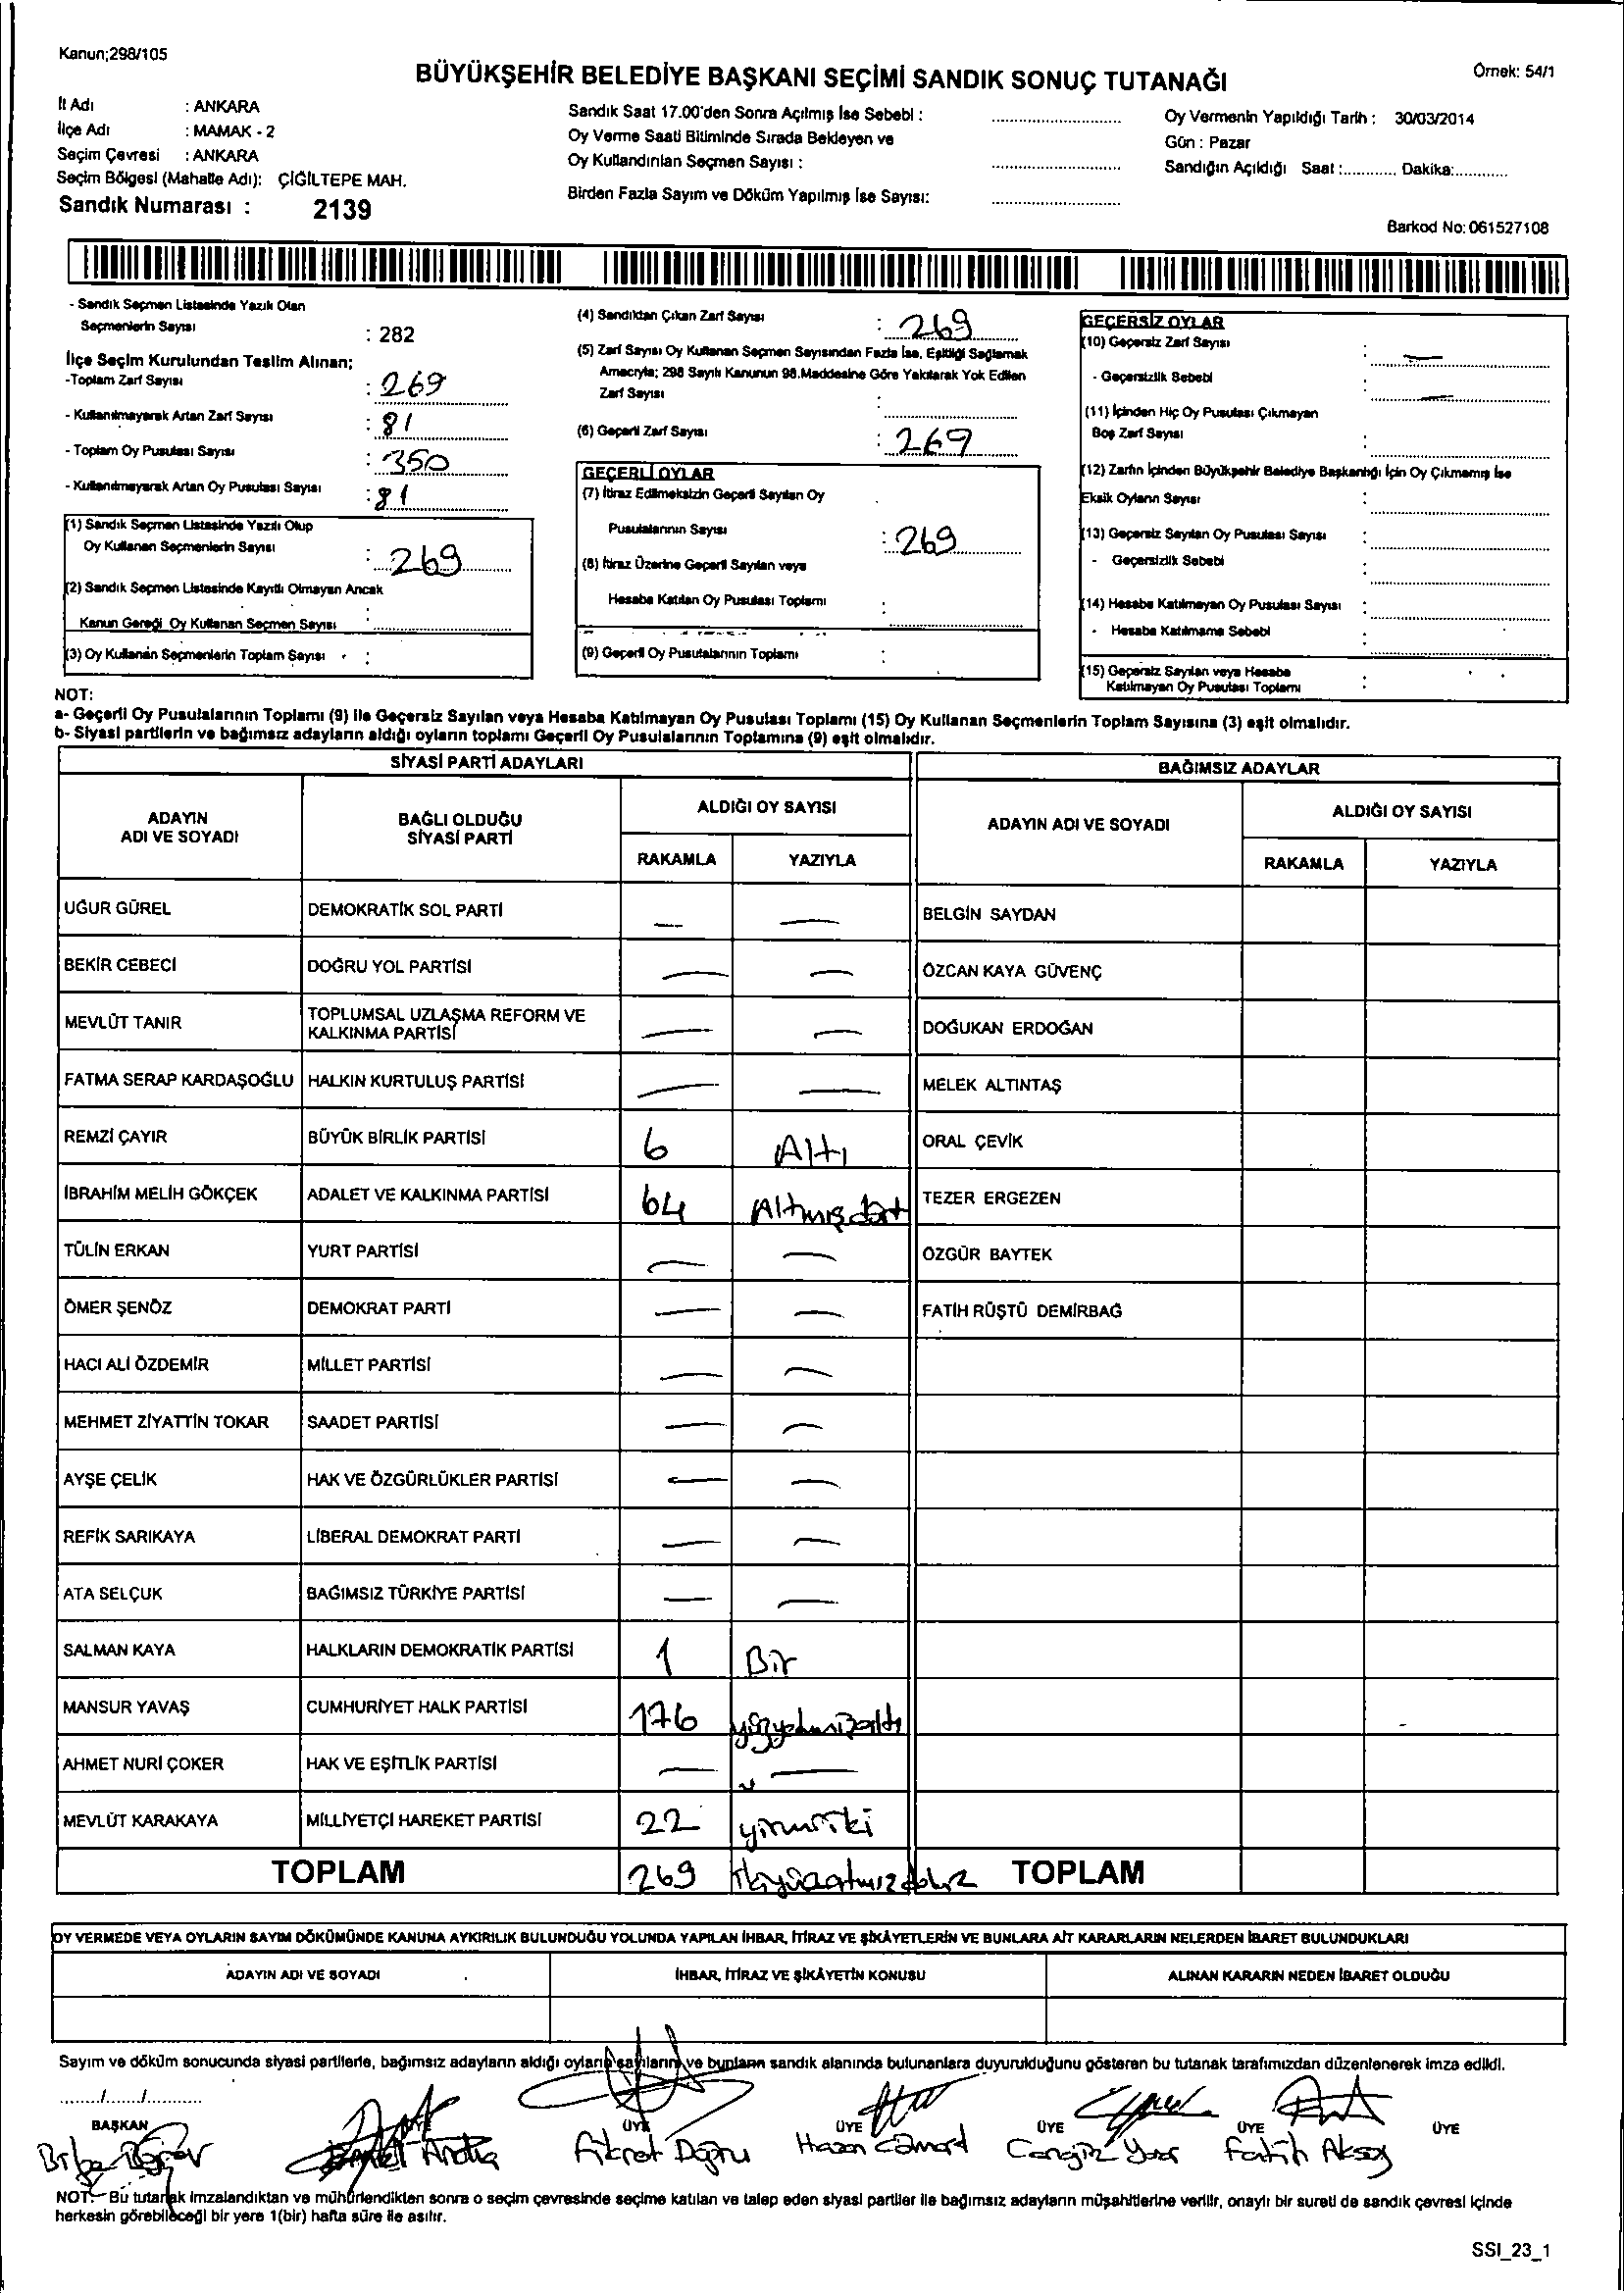 Kanun;298/105
BÜYÜKŞEHİR BELEDİYE BAŞKANI SEÇİMİ SANDIK SONUÇ TUTANAĞI
Örnek: 54/1
İl Adı : ANKARA
İlçe Adı : MAMAK - 2
Seçim Çevresi : ANKARA
Seçim Bölgesi (Mahalle Adı): ÇİĞİLTEPE MAH.
Sandık Numarası : 2139
Sandık Saat 17.00'den Sonra Açılmış İse Sebebi :
Oy Verme Saati Bitiminde Sırada Bekleyen ve
Oy Kullandırılan Seçmen Sayısı :
Birden Fazla Sayım ve Döküm Yapılmış İse Sayısı:
Oy Vermenin Yapıldığı Tarih : 30/03/2014
Gün : Pazar
Sandığın Açıldığı Saat :............ Dakika:............
Barkod No: 061527108
- Sandık Seçmen Listesinde Yazılı Olan
Seçmenlerin Sayısı : 282
İlçe Seçim Kurulundan Teslim Alınan;
-Toplam Zarf Sayısı : 269
- Kullanılmayarak Artan Zarf Sayısı : 81
- Toplam Oy Pusulası Sayısı : 350
- Kullanılmayarak Artan Oy Pusulası Sayısı : 81
(1) Sandık Seçmen Listesinde Yazılı Olup
Oy Kullanan Seçmenlerin Sayısı : 269
(2) Sandık Seçmen Listesinde Kayıtlı Olmayan Ancak
Kanun Gereği Oy Kullanan Seçmen Sayısı :
(3) Oy Kullanan Seçmenlerin Toplam Sayısı :
(4) Sandıktan Çıkan Zarf Sayısı : 269
(5) Zarf Sayısı Oy Kullanan Seçmen Sayısından Fazla İse, Eşitliği Sağlamak
Amacıyla; 298 Sayılı Kanunun 98.Maddesine Göre Yakılarak Yok Edilen
Zarf Sayısı :
(6) Geçerli Zarf Sayısı : 269
GEÇERLİ OYLAR
(7) İtiraz Edilmeksizin Geçerli Sayılan Oy
Pusulalarının Sayısı : 269
(8) İtiraz Üzerine Geçerli Sayılan veya
Hesaba Katılan Oy Pusulası Toplamı :
(9) Geçerli Oy Pusulalarının Toplamı :
GEÇERSİZ OYLAR
(10) Geçersiz Zarf Sayısı : —
- Geçersizlik Sebebi : —
(11) İçinden Hiç Oy Pusulası Çıkmayan
Boş Zarf Sayısı :
(12) Zarfın İçinden Büyükşehir Belediye Başkanlığı İçin Oy Çıkmamış İse
Eksik Oyların Sayısı :
(13) Geçersiz Sayılan Oy Pusulası Sayısı :
- Geçersizlik Sebebi :
(14) Hesaba Katılmayan Oy Pusulası Sayısı :
- Hesaba Katılmama Sebebi :
(15) Geçersiz Sayılan veya Hesaba
Katılmayan Oy Pusulası Toplamı :
NOT:
a- Geçerli Oy Pusulalarının Toplamı (9) ile Geçersiz Sayılan veya Hesaba Katılmayan Oy Pusulası Toplamı (15) Oy Kullanan Seçmenlerin Toplam Sayısına (3) eşit olmalıdır.
b- Siyasi partilerin ve bağımsız adayların aldığı oyların toplamı Geçerli Oy Pusulalarının Toplamına (9) eşit olmalıdır.
SİYASİ PARTİ ADAYLARI BAĞIMSIZ ADAYLAR
ADAYIN ADI VE SOYADI BAĞLI OLDUĞU SİYASİ PARTİ ALDIĞI OY SAYISI ADAYIN ADI VE SOYADI ALDIĞI OY SAYISI
RAKAMLA YAZIYLA RAKAMLA YAZIYLA
UĞUR GÜREL DEMOKRATİK SOL PARTİ — — BELGİN SAYDAN
BEKİR CEBECİ DOĞRU YOL PARTİSİ — — ÖZCAN KAYA GÜVENÇ
MEVLÜT TANIR TOPLUMSAL UZLAŞMA REFORM VE KALKINMA PARTİSİ — — DOĞUKAN ERDOĞAN
FATMA SERAP KARDAŞOĞLU HALKIN KURTULUŞ PARTİSİ — — MELEK ALTINTAŞ
REMZİ ÇAYIR BÜYÜK BİRLİK PARTİSİ 6 Altı ORAL ÇEVİK
İBRAHİM MELİH GÖKÇEK ADALET VE KALKINMA PARTİSİ 64 Altmışdört TEZER ERGEZEN
TÜLİN ERKAN YURT PARTİSİ — — ÖZGÜR BAYTEK
ÖMER ŞENÖZ DEMOKRAT PARTİ — — FATİH RÜŞTÜ DEMİRBAĞ
HACI ALİ ÖZDEMİR MİLLET PARTİSİ — —
MEHMET ZİYATTİN TOKAR SAADET PARTİSİ — —
AYŞE ÇELİK HAK VE ÖZGÜRLÜKLER PARTİSİ — —
REFİK SARIKAYA LİBERAL DEMOKRAT PARTİ — —
ATA SELÇUK BAĞIMSIZ TÜRKİYE PARTİSİ — —
SALMAN KAYA HALKLARIN DEMOKRATİK PARTİSİ 1 Bir
MANSUR YAVAŞ CUMHURİYET HALK PARTİSİ 176
AHMET NURİ ÇOKER HAK VE EŞİTLİK PARTİSİ — —
MEVLÜT KARAKAYA MİLLİYETÇİ HAREKET PARTİSİ 22 yirmiiki
TOPLAM 269 TOPLAM
OY VERMEDE VEYA OYLARIN SAYIM DÖKÜMÜNDE KANUNA AYKIRILIK BULUNDUĞU YOLUNDA YAPILAN İHBAR, İTİRAZ VE ŞİKÂYETLERİN VE BUNLARA AİT KARARLARIN NELERDEN İBARET BULUNDUKLARI
ADAYIN ADI VE SOYADI İHBAR, İTİRAZ VE ŞİKÂYETİN KONUSU ALINAN KARARIN NEDEN İBARET OLDUĞU
Sayım ve döküm sonucunda siyasi partilerle, bağımsız adayların aldığı oyların sayılarını ve bunların sandık alanında bulunanlara duyurulduğunu gösteren bu tutanak tarafımızdan düzenlenerek imza edildi.
....../....../......
BAŞKAN ÜYE ÜYE ÜYE ÜYE ÜYE
Fikret Doğru Hasan Cengiz Fatih Aksoy
NOT: Bu tutanak imzalandıktan ve mühürlendikten sonra o seçim çevresinde seçime katılan ve talep eden siyasi partiler ile bağımsız adayların müşahitlerine verilir, onaylı bir sureti de sandık çevresi içinde
herkesin görebileceği bir yere 1(bir) hafta süre ile asılır.
SSI_23_1